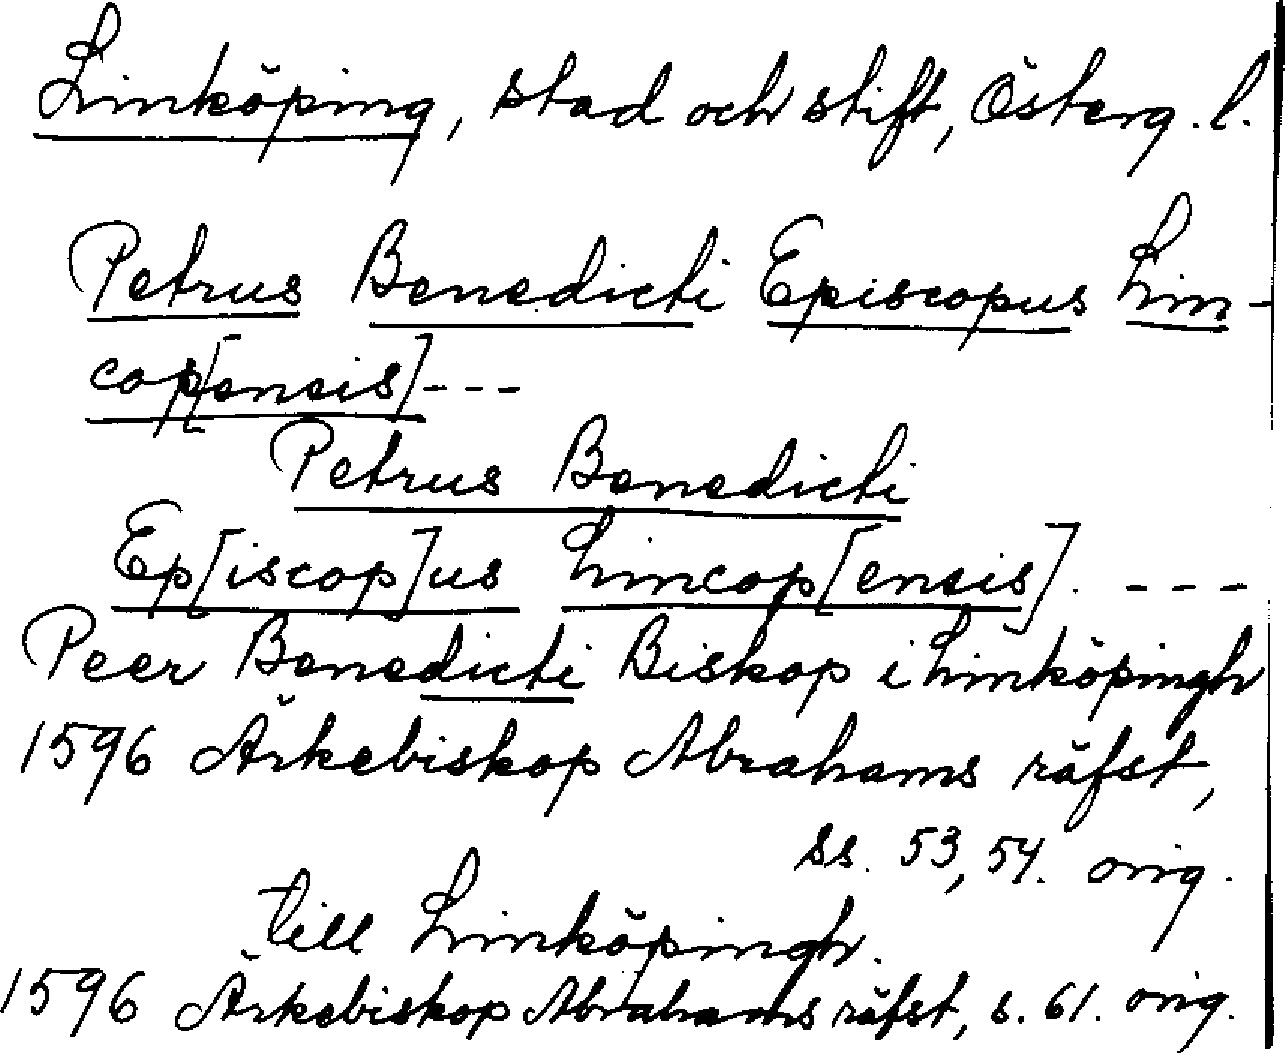 Linköping, stad och stift, Österg. l.
Petrus Benedicti Episcopus Lin-
cop[ensis] - - -
Petrus Benedicti
Ep[iscop]us Lincop[ensis]. - - -
Peer Benedicti Biskop i Linköpingh
1596 Ärkebiskop Abrahams räfst,
ss. 53, 54. orig.
till Linköpingh.
1596 Ärkebiskop Abrahams räfst, s. 61. orig.